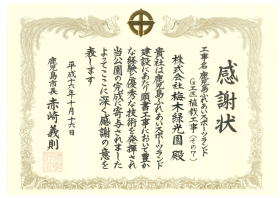 感謝状
工事名 鹿児島ふれあいスポーツランド
G工区植栽工事(その7)
株式会社 梅木緑光園 殿
貴社は鹿児島ふれあいスポーツランド
建設にあたり頭書工事において豊か
な経験と優秀な技術を発揮され
当公園の完成に寄与されました
よってここに深く感謝の意を
表します
平成十六年十月十六日
鹿児島市長 赤崎義則